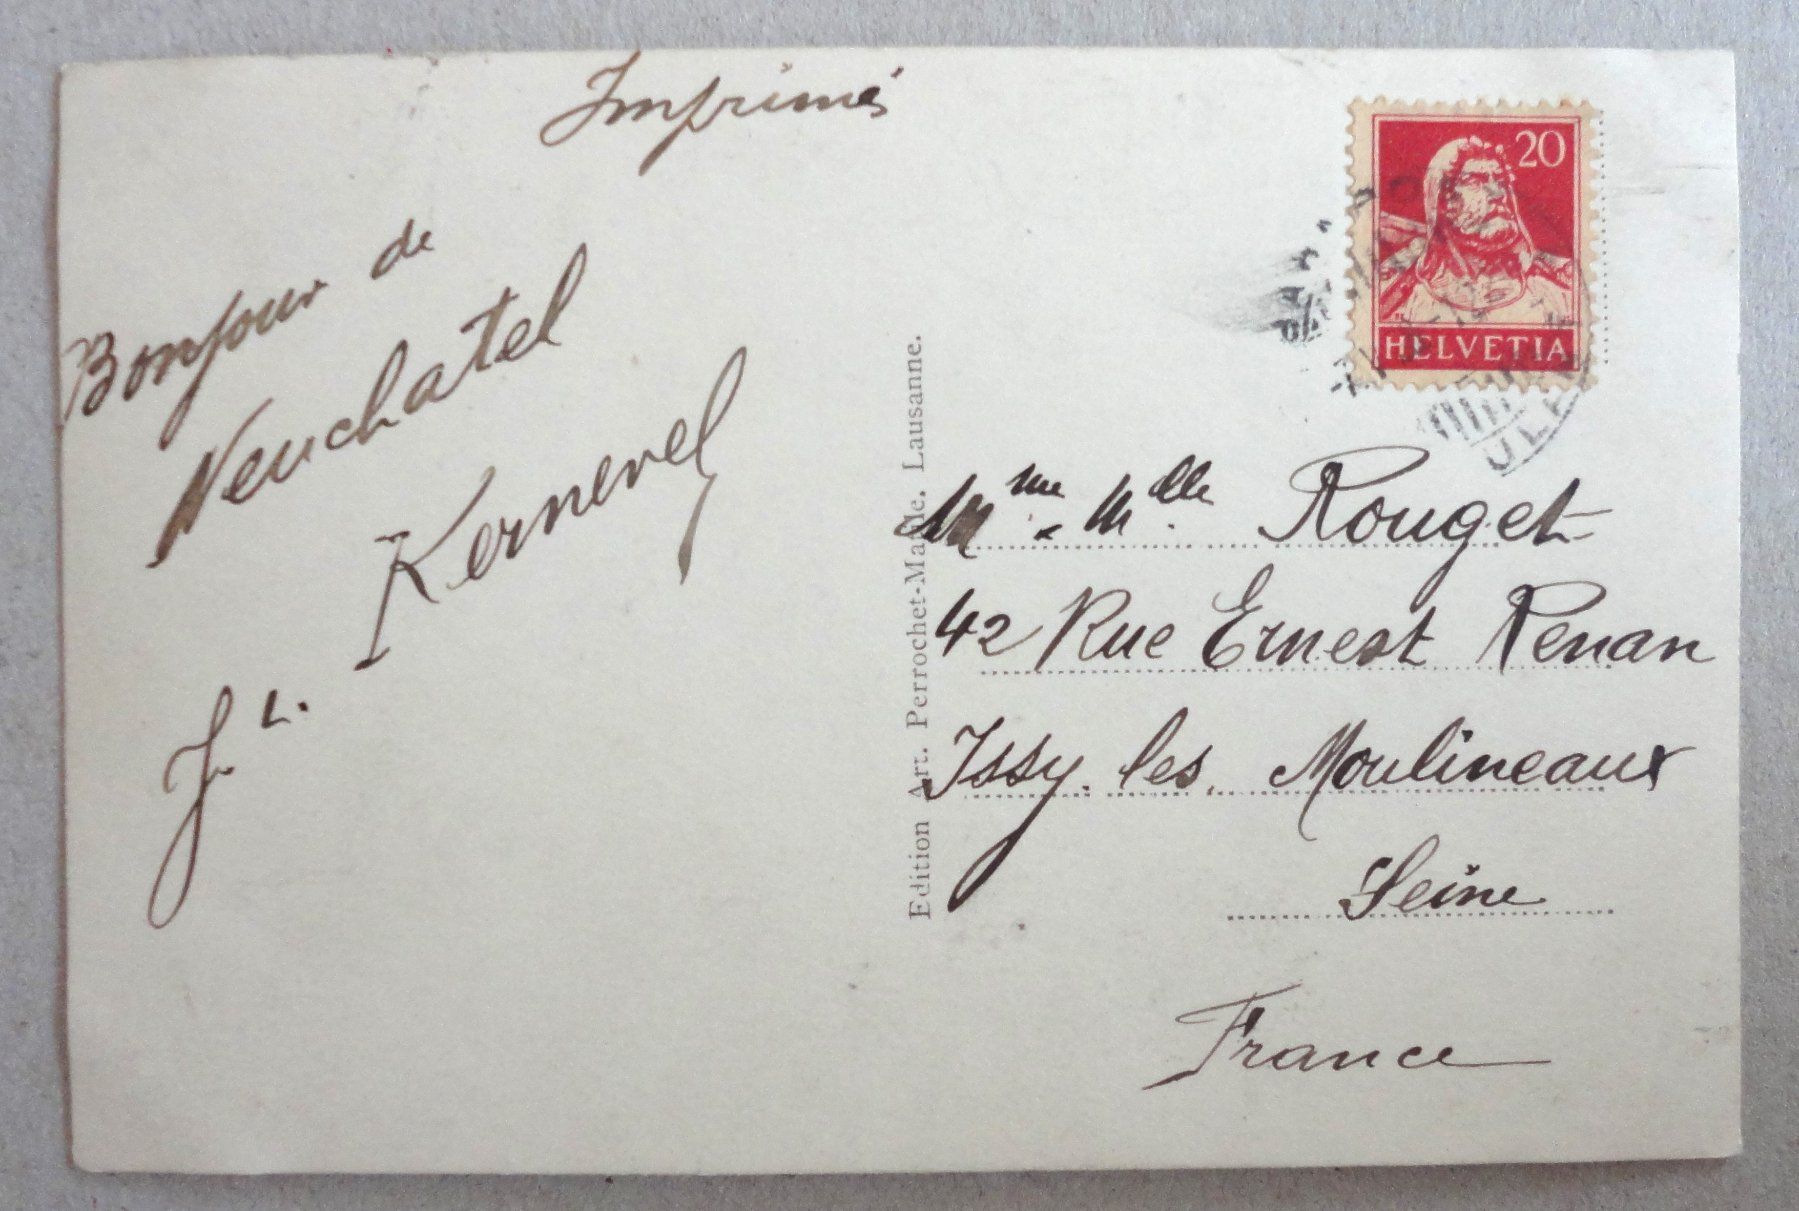 Imprimés
Bonjour de
Neuchatel
Kernevel
J L.
20
HELVETIA
Edition Art. Perrochet-Matile. Lausanne.
Mme & Mlle Rouget
42 Rue Ernest Renan
Issy. les. Moulineaux
Seine
France